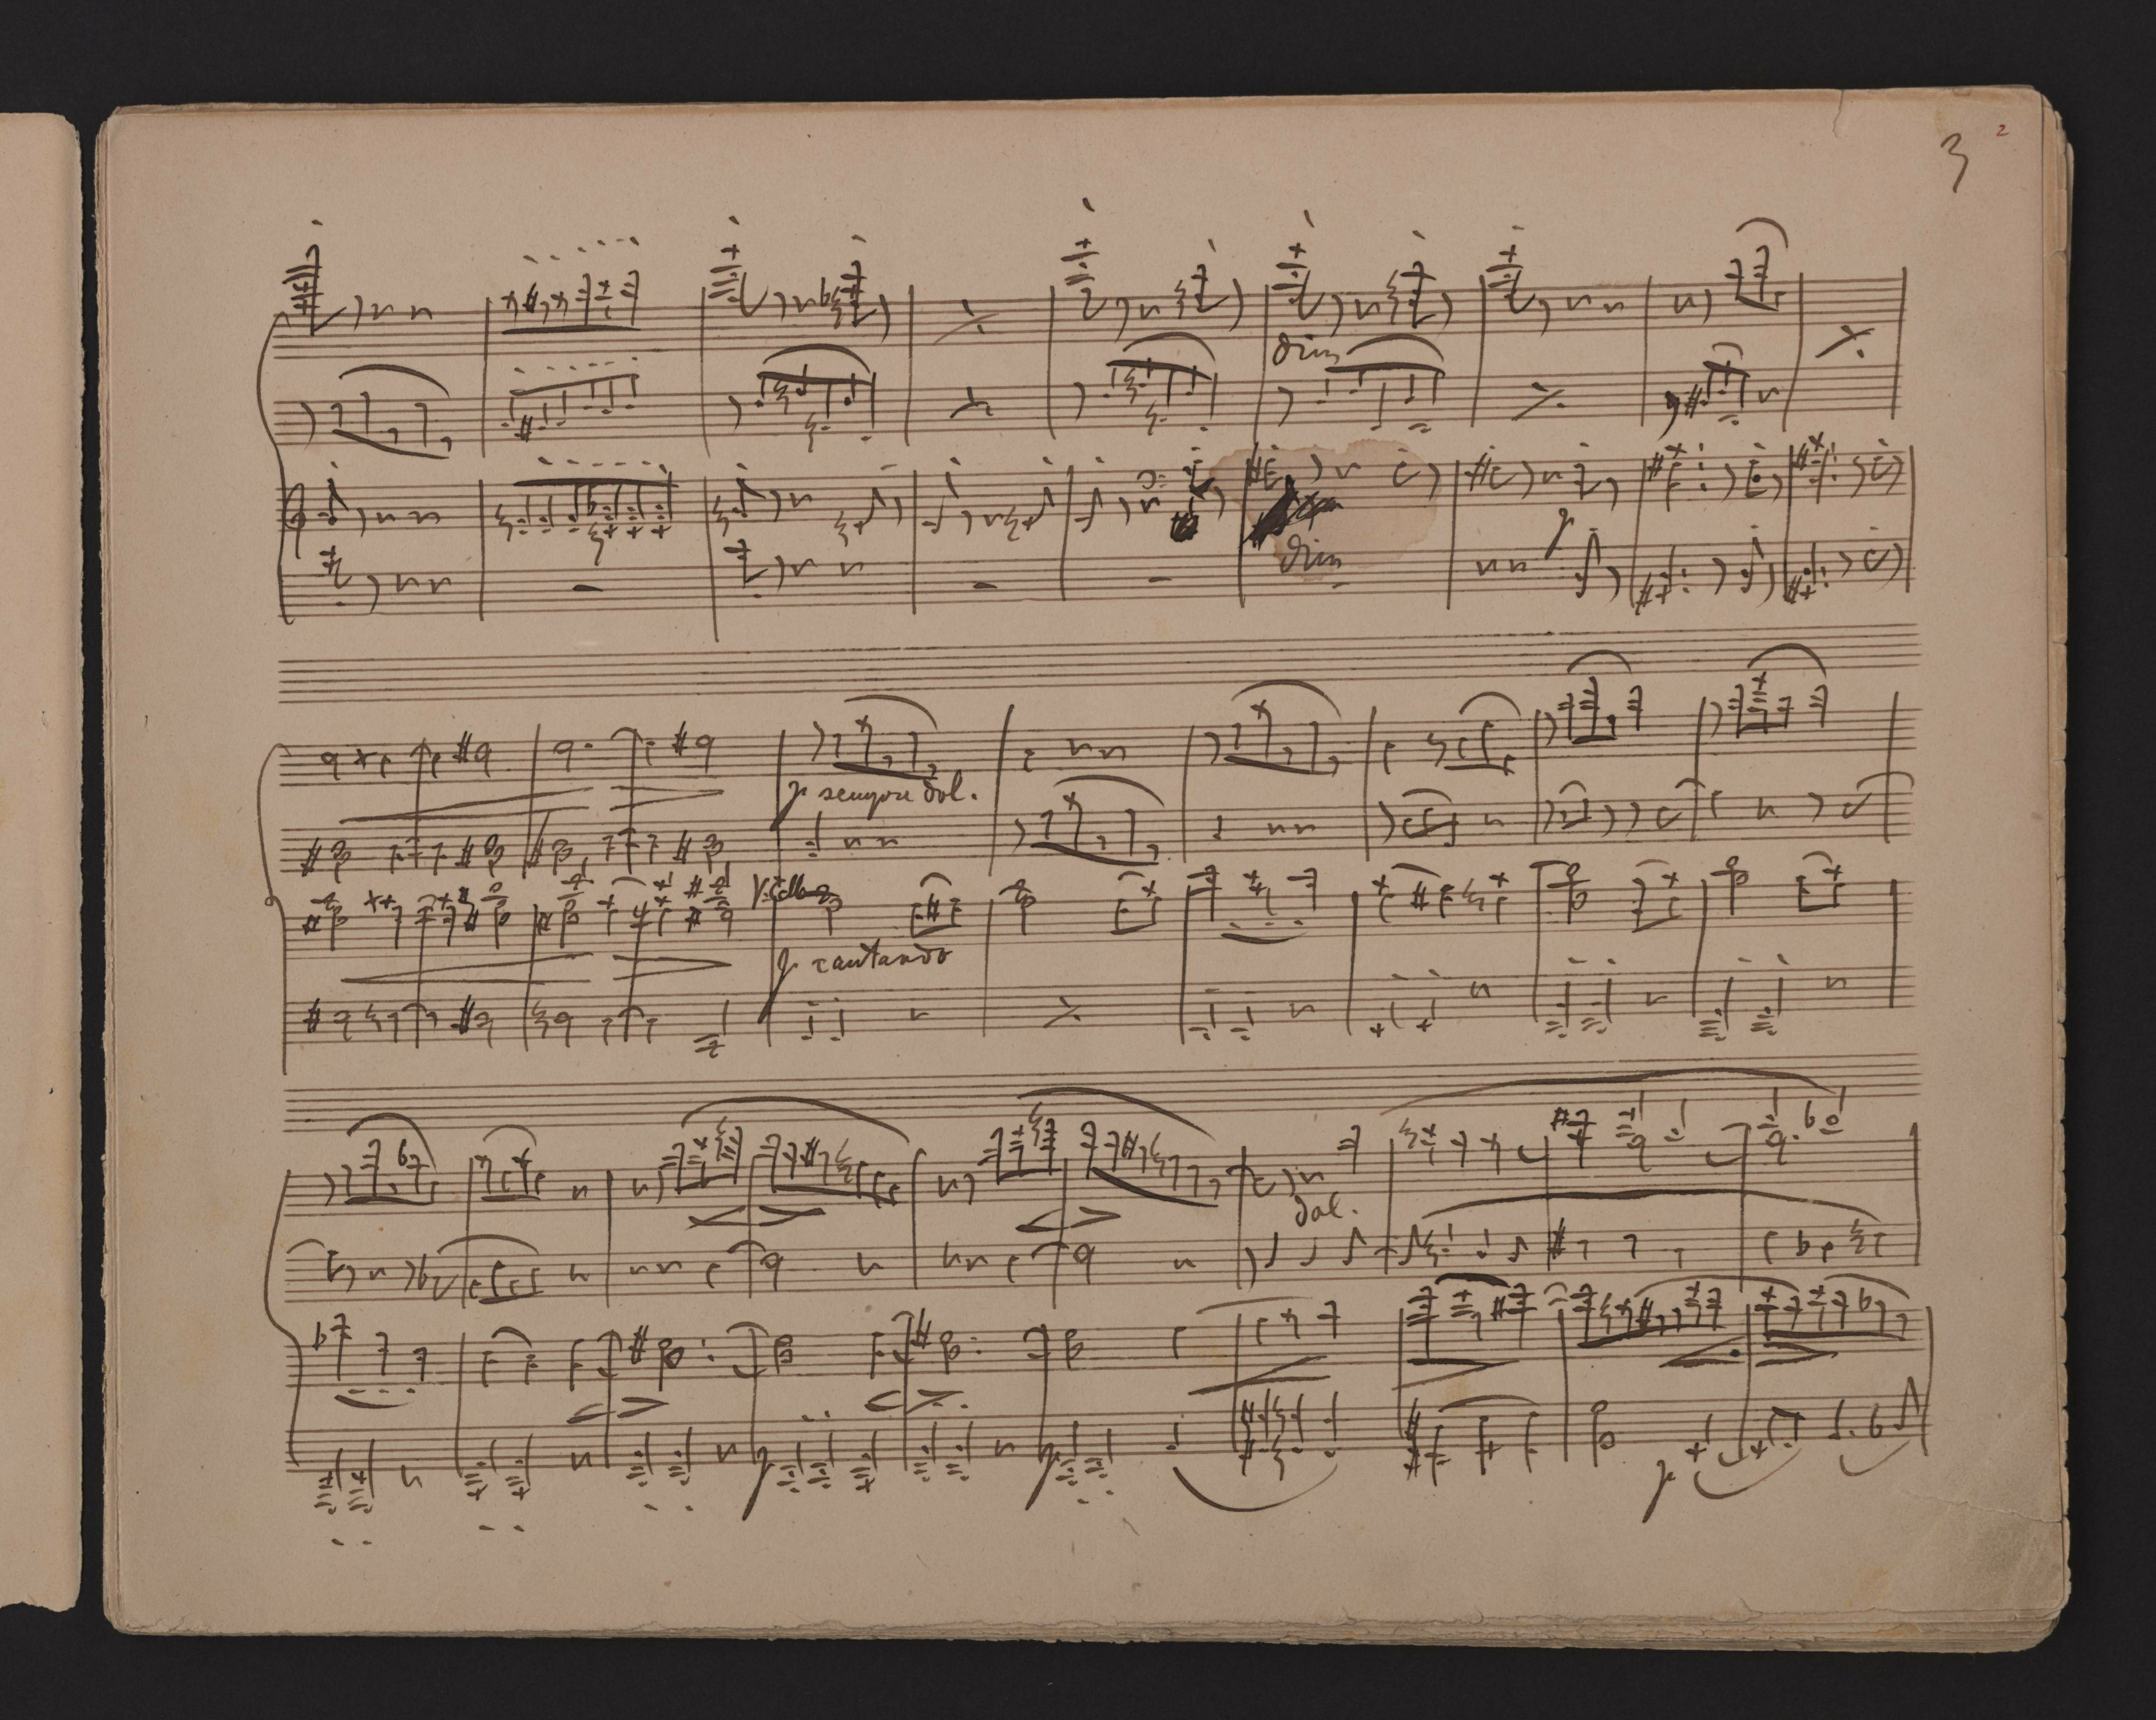 2
3
dim
dim
p
p sempre dol.
Vcello
p cantando
dol.
p
p
p